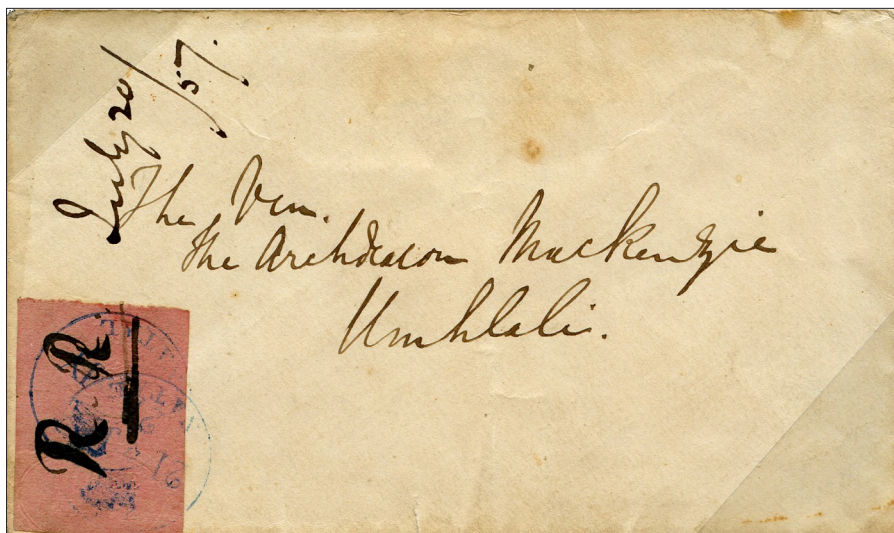 July 20/57.
The Ven.
The Archdeacon Mackenzie
Umhlali.
R R